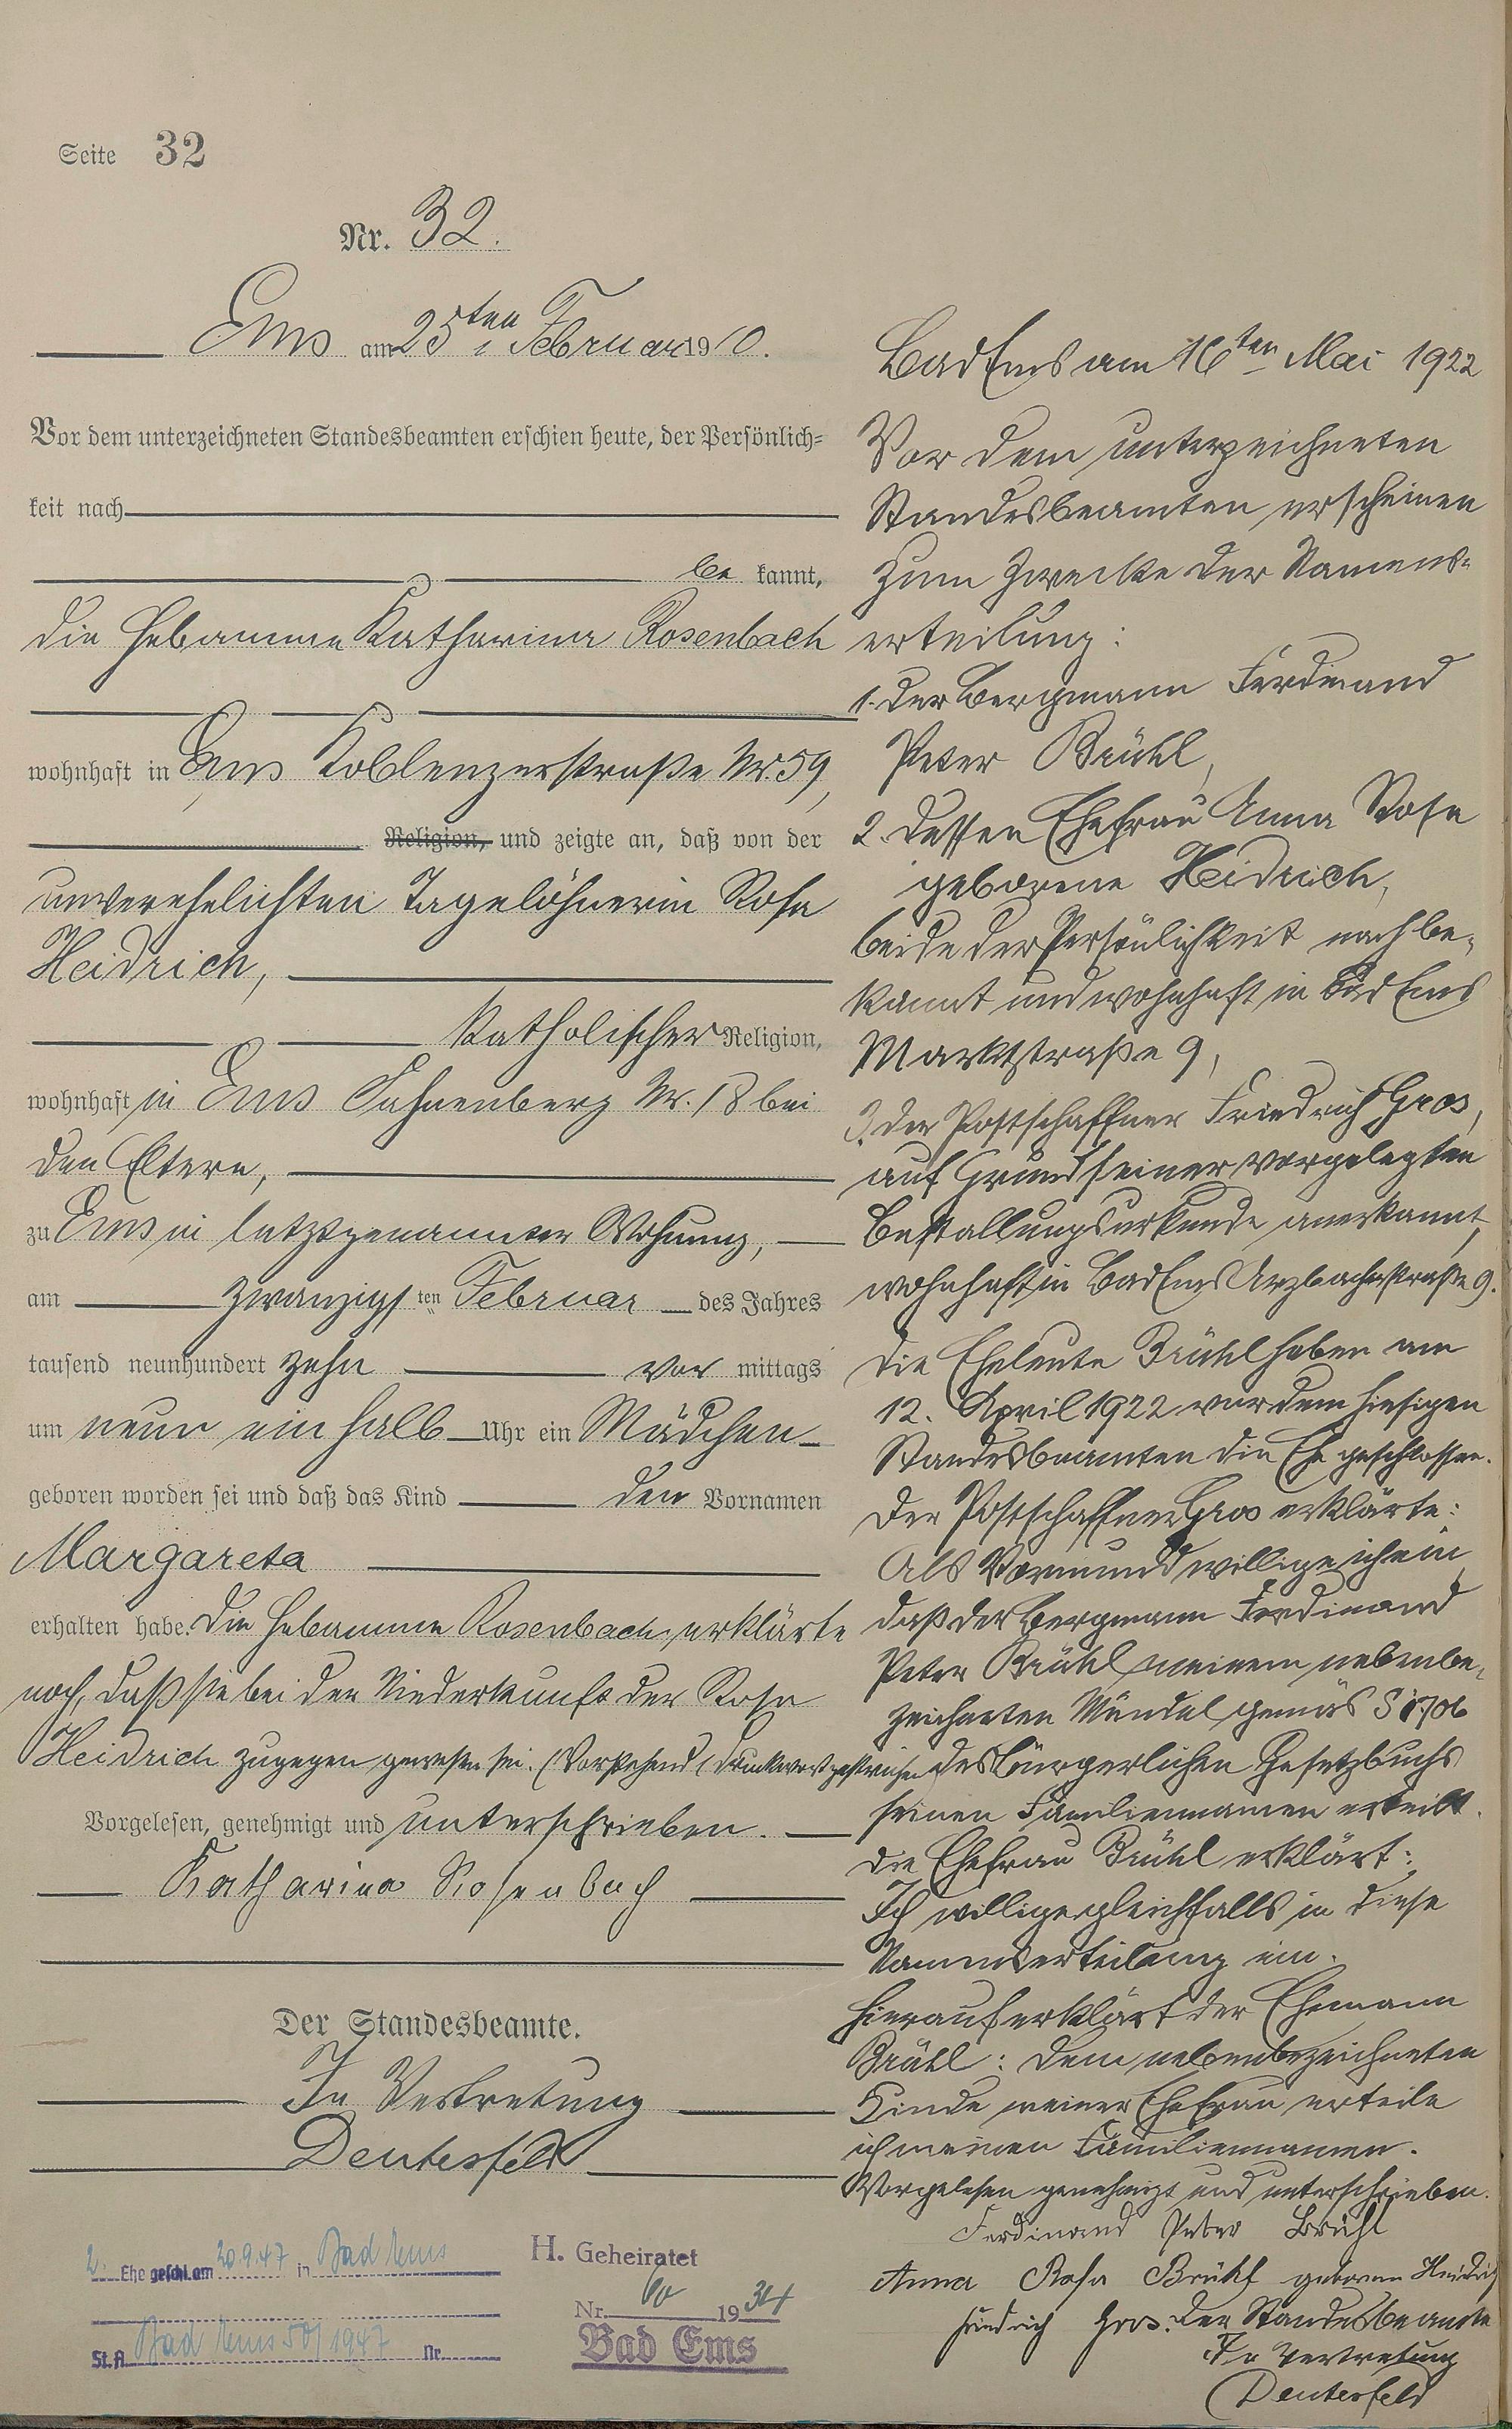 Seite 32
Nr. 32.
Ems am 25ten Februar 1910.
Vor dem unterzeichneten Standesbeamten erschien heute, der Persönlich=
keit nach
be kannt,
die Hebamme Katharina Rosenbach
wohnhaft in Ems Koblenzerstraße Nr. 59,
Religion, und zeigte an, daß von der
unverehelichten Tagelöhnerin Rosa
Heidrich,
katholischer Religion,
wohnhaft in Ems Fahnenberg Nr. 18 bei
den Eltern,
zu Ems in letztgenannter Wohnung,
am zwanzigsten Februar des Jahres
tausend neunhundert zehn vor mittags
um neun einhalb Uhr ein Mädchen
geboren worden sei und daß das Kind den Vornamen
Margareta
erhalten habe. Die Hebamme Rosenbach erklärte
noch, daß sie bei der Niederkunft der Rosa
Heidrich zugegen gewesen sei. (Vorstehend 1 Druckwort gestrichen
Vorgelesen, genehmigt und unterschrieben.
Katharina Rosenbach
Der Standesbeamte.
In Vertretung
Deutesfeld
2. Ehe geschl. am 20.9.47 in Bad Ems
St. A. Bad Ems 50/1947 Nr.
H. Geheiratet
Nr. 1934
Bad Ems
Bad Ems am 16ten Mai 1922
Vor dem unterzeichneten
Standesbeamten erscheinen
zum Zwecke der Namens=
erteilung:
1. der Bergmann Ferdinand
Peter Brühl,
2. dessen Ehefrau Anna Rosa
geborene Heidrich,
beide der Persönlichkeit nach be=
kannt und wohnhaft in Bad Ems
Marktstraße 9,
3. der Postschaffner Friedrich Gros,
auf Grund seiner vorgelegten
Bestallungsurkunde anerkannt,
wohnhaft in Bad Ems Arzbacherstraße 9.
Die Eheleute Brühl haben am
12. April 1922 vor dem hiesigen
Standesbeamten die Ehe geschlossen.
Der Postschaffner Gros erklärte:
Als Vormund willige ich ein,
daß der Bergmann Ferdinand
Peter Brühl meinem nebenbe=
zeichneten Mündel gemäs § 1706
des bürgerlichen Gesetzbuchs
seinen Familiennamen erteilt.
Die Ehefrau Brühl erklärt:
Ich willige gleichfalls in diese
Namenserteilung ein.
Hierauf erklärt der Ehemann
Brühl: Dem nebenbezeichneten
Kinde meiner Ehefrau erteile
ich meinen Familiennamen.
Vorgelesen genehmigt und unterschrieben.
Ferdinand Peter Brühl
Anna Rosa Brühl geborene Heidrich
Friedrich Gros. Der Standesbeamte
In Vertretung
Deutesfeld